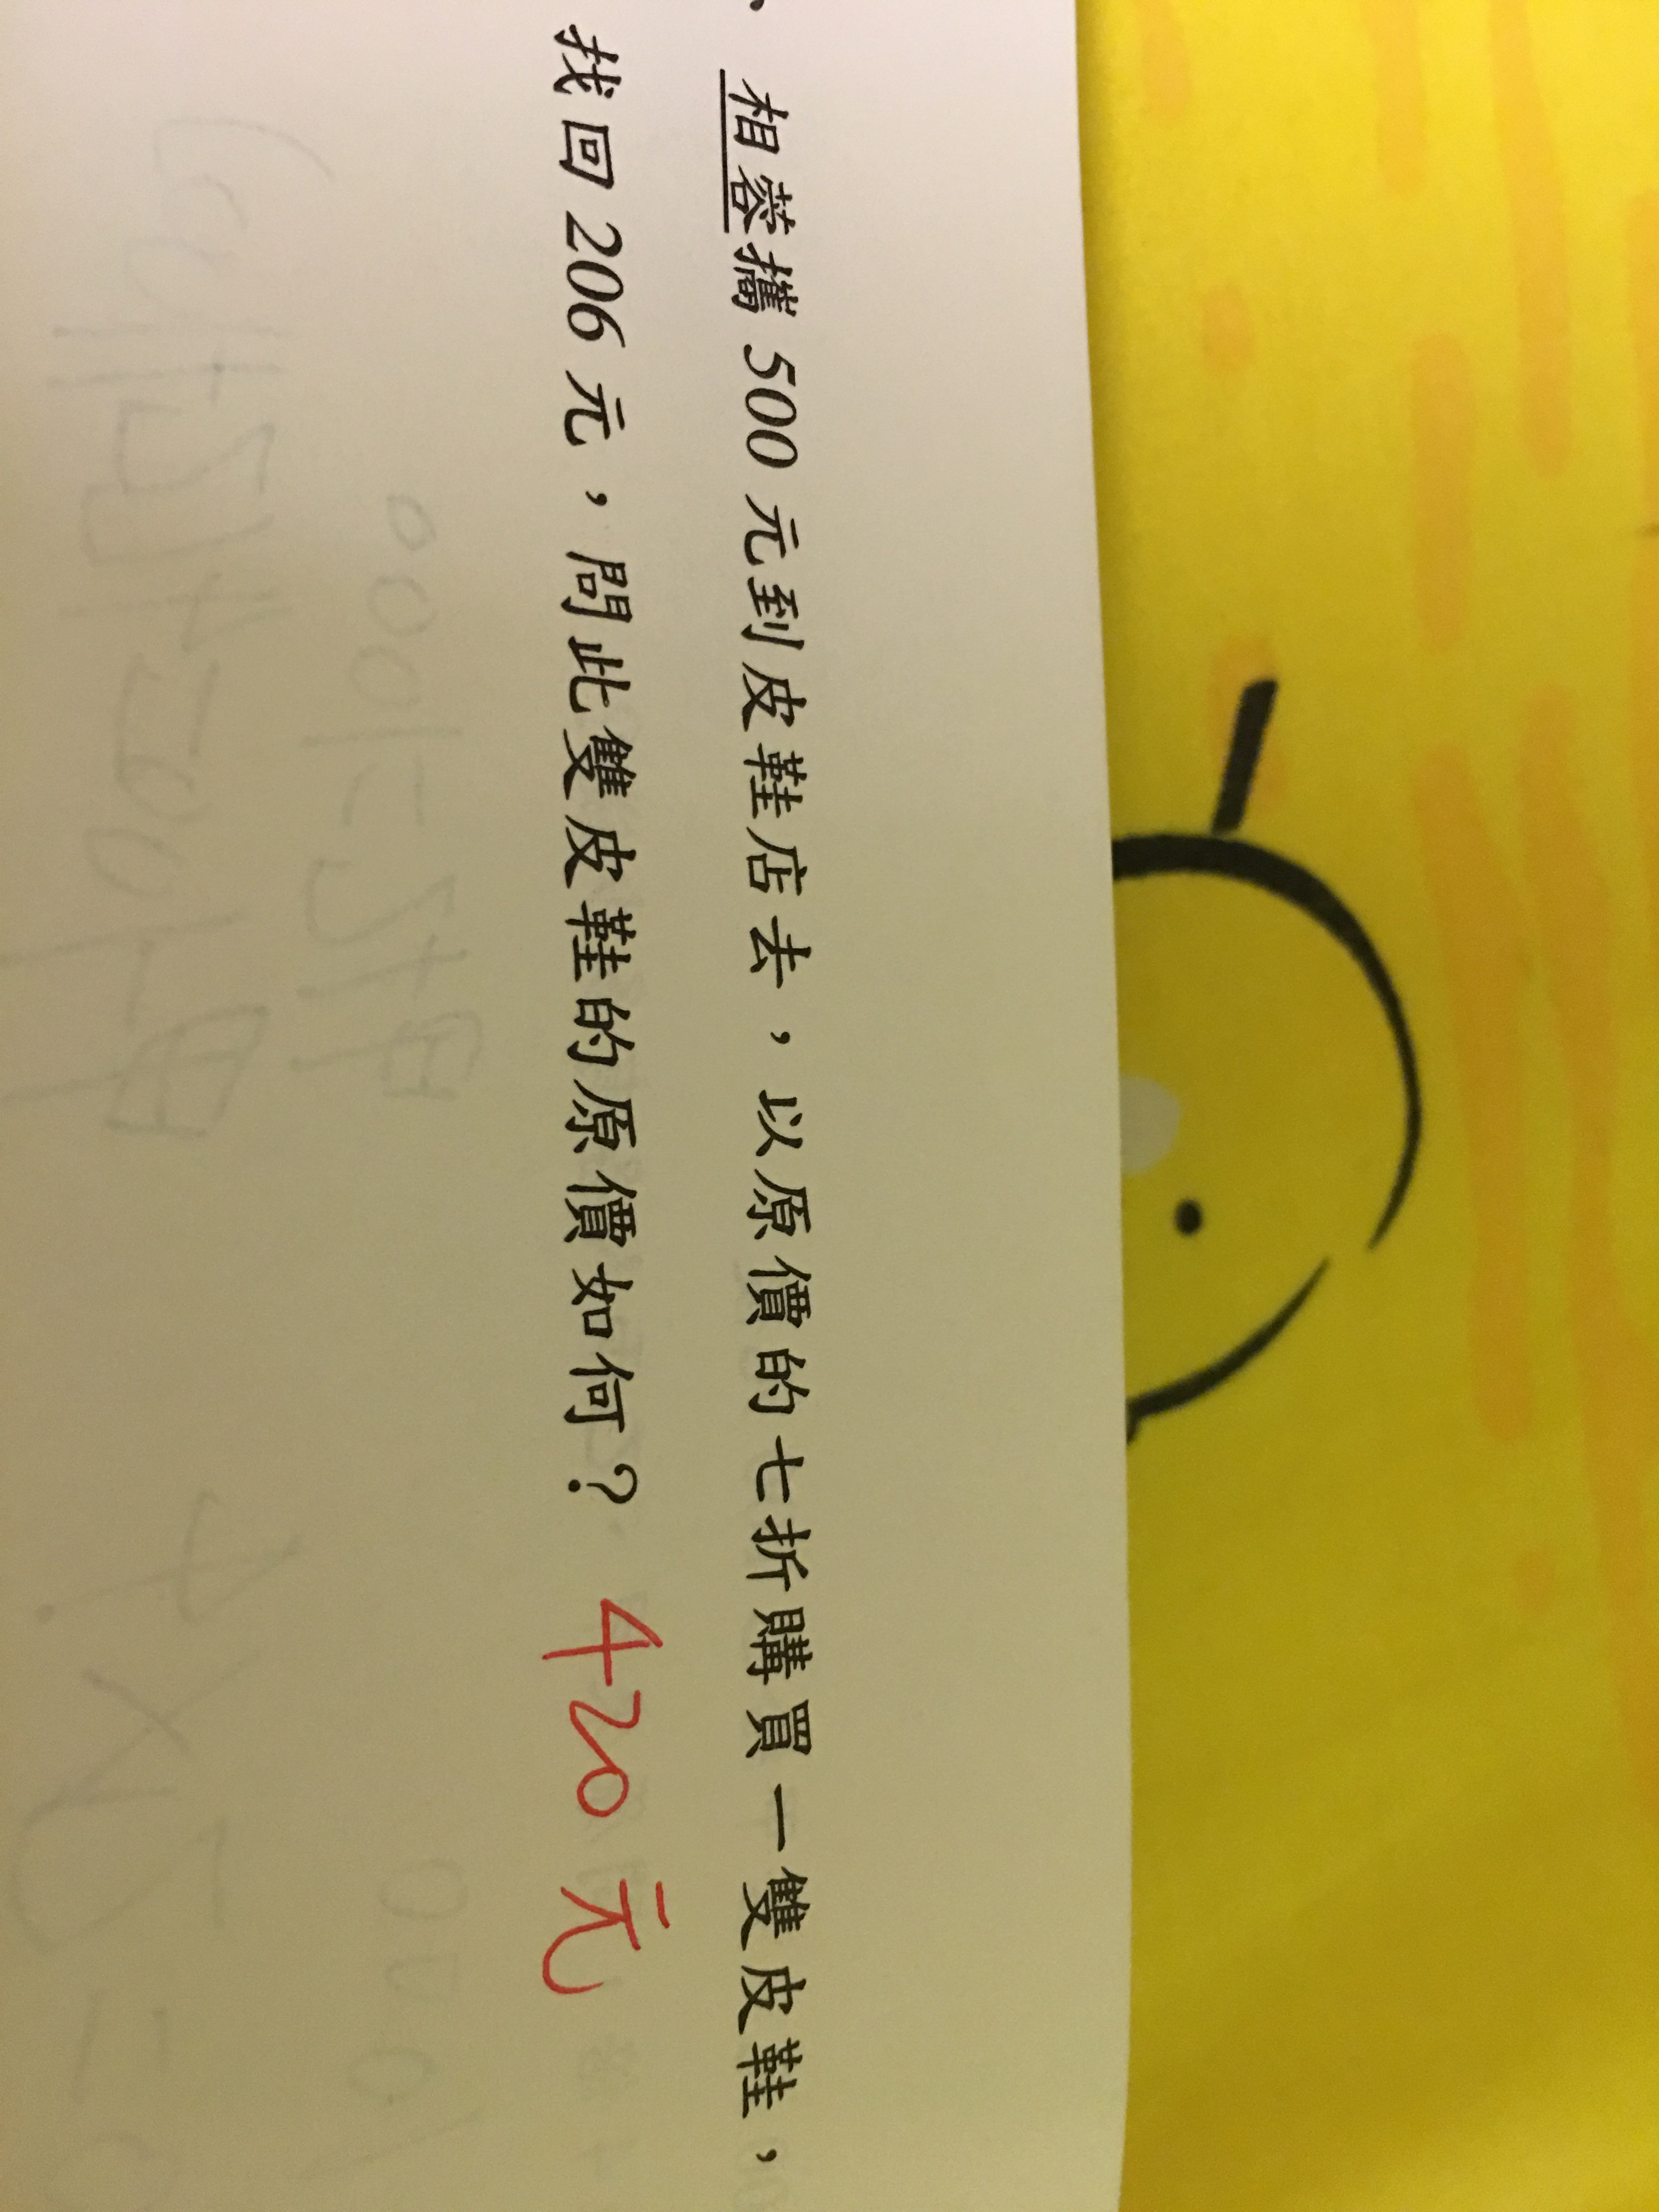 、相蓉攜 500 元到皮鞋店去，以原價的七折購買一雙皮鞋，
找回 206 元，問此雙皮鞋的原價如何？ 420 元